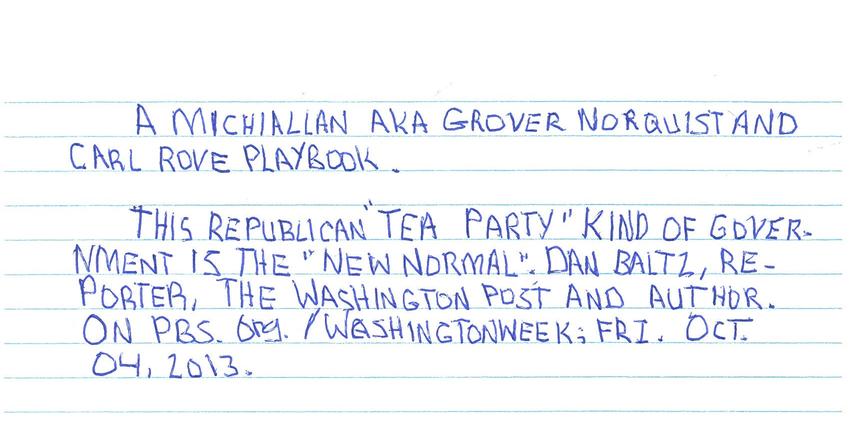 A MICHIALLAN AKA GROVER NORQUIST AND
CARL ROVE PLAYBOOK.
THIS REPUBLICAN "TEA PARTY" KIND OF GOVER-
NMENT IS THE "NEW NORMAL". DAN BALTZ, RE-
PORTER, THE WASHINGTON POST AND AUTHOR.
ON PBS. Org. /WASHINGTONWEEK; FRI. OCT.
04, 2013.